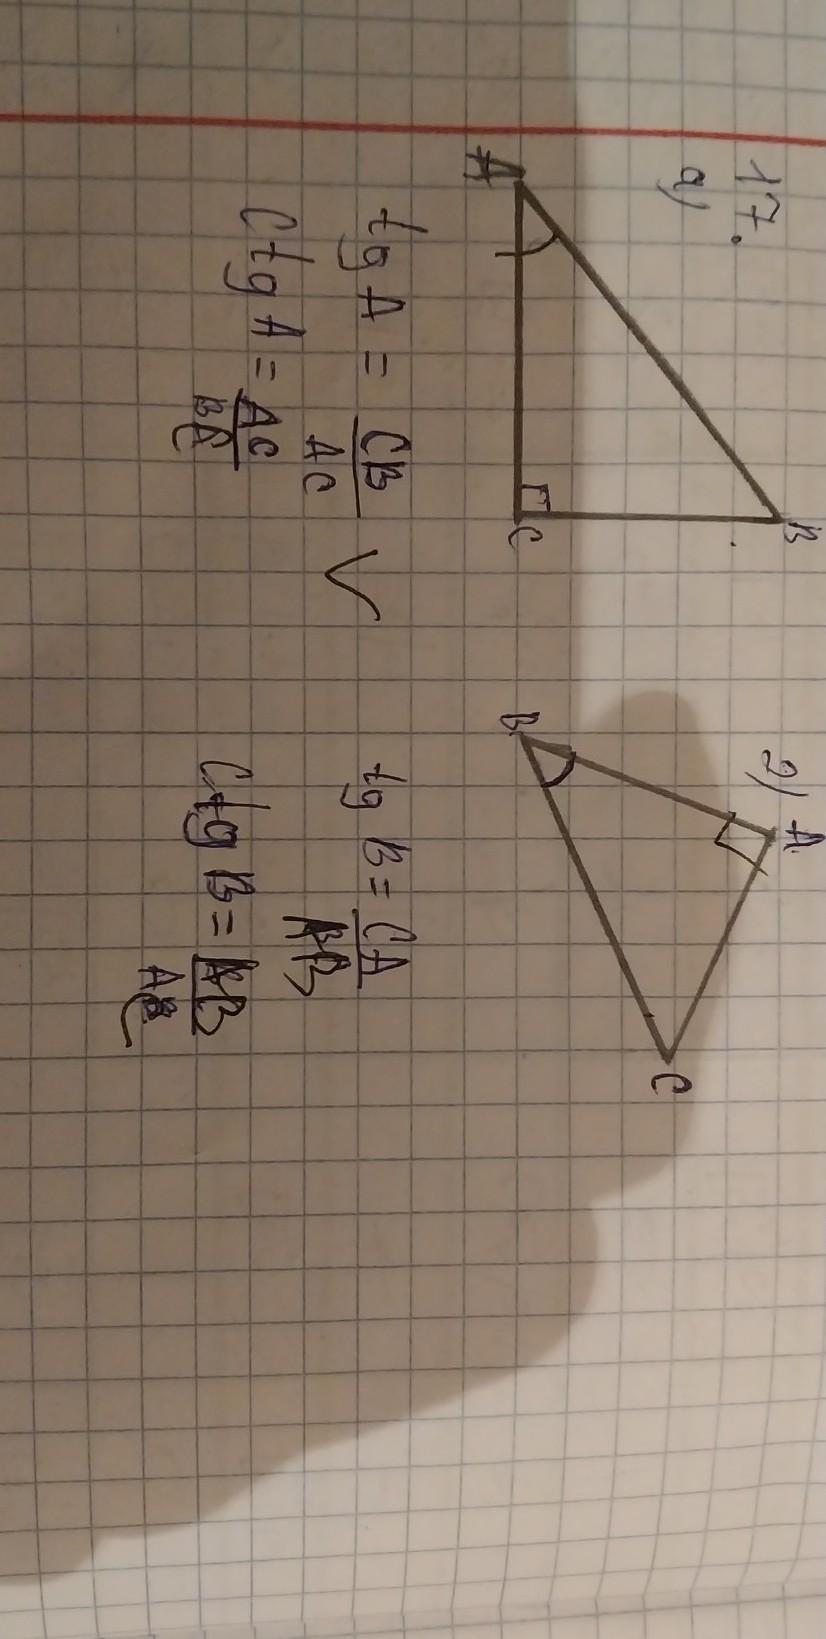 17.
a)
A
B
C
tg A = CB / AC
Ctg A = AC / BC
2)
A
B
C
tg B = CA / AB
Ctg B = AB / AC